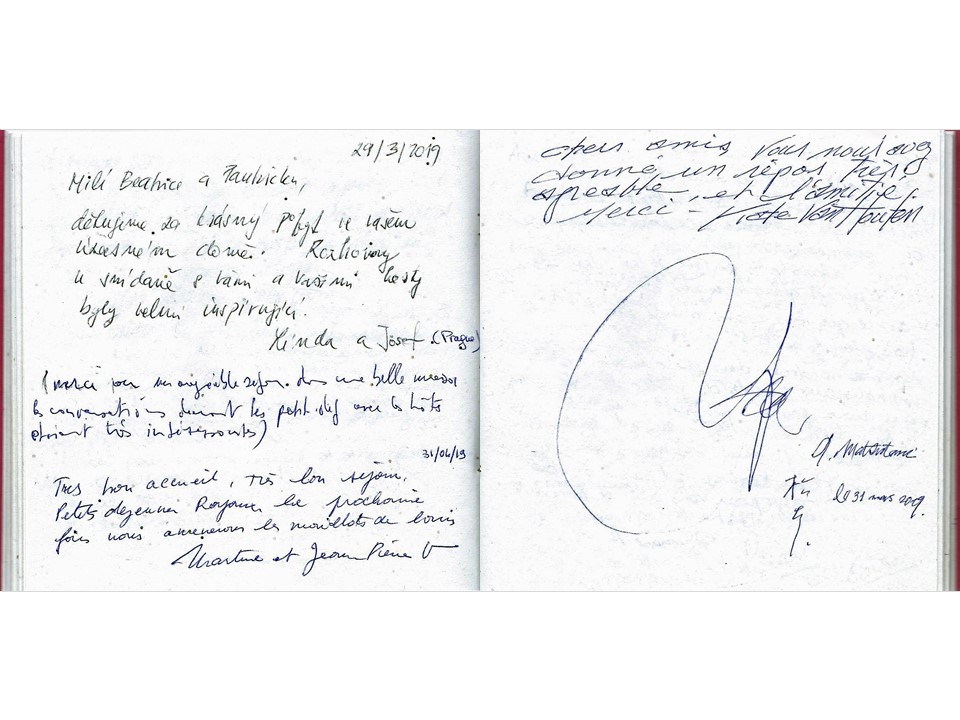 29/3/2019
Milí Beatrice a
děkujeme za krásný pobyt ve vašem
úžasném domě. Rozhovory
u snídaně s vámi a vašimi hosty
byly velmi inspirující.
Linda a Josef (Prague)
(merci pour un agréable séjour dans une belle maison
les conversations durant les petit dej avec les hôts
étaient très intéressantes)
31/04/19
Tres bon accueil, très bon séjour.
Petits dejeuner Royaux la prochaine
fois nous amenerons les mouillets de
Martine et Jean Pierre V
chers amis vous nous avez
donné un repos très
agréable, et l'amitié.
Merci -
le 31 mars 2019.